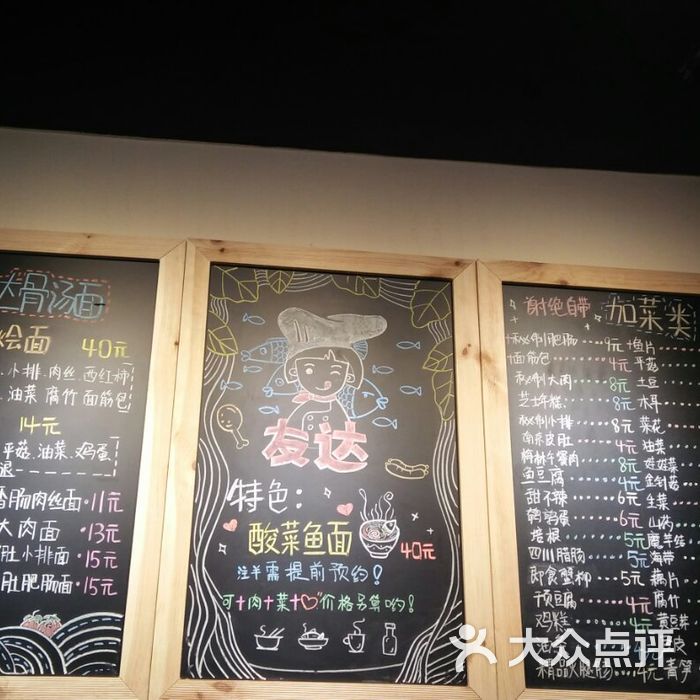 大骨汤面
烩面 40元
小排.肉丝.西红柿
油菜.腐竹.面筋包
14元
平菇.油菜.鸡蛋
肠肉丝面·11元
大肉面·13元
肚小排面·15元
肚肥肠面·15元
友达
特色:
酸菜鱼面
40元
注:需提前预约!
可+肉+菜+价格另算哟!
谢绝自带 加菜类
秘制肥肠 9元 鱼片
面筋包 4元 平菇
秘制大肉 8元 土豆
芝士年糕 8元 木耳
秘制小排 8元 菜花
皮肚 4元 油菜
梅林午餐肉 8元 娃娃菜
鱼豆腐 4元 金针菇
甜不辣 6元 生菜
鹌鹑蛋 6元 山药
培根 5元 魔芋丝
四川腊肠 5元 海带
即食蟹柳 5元 藕片
预豆腐 4元 腐竹
鸡糕 4元 黄豆芽
精品火腿肠 4元 青笋
大众点评